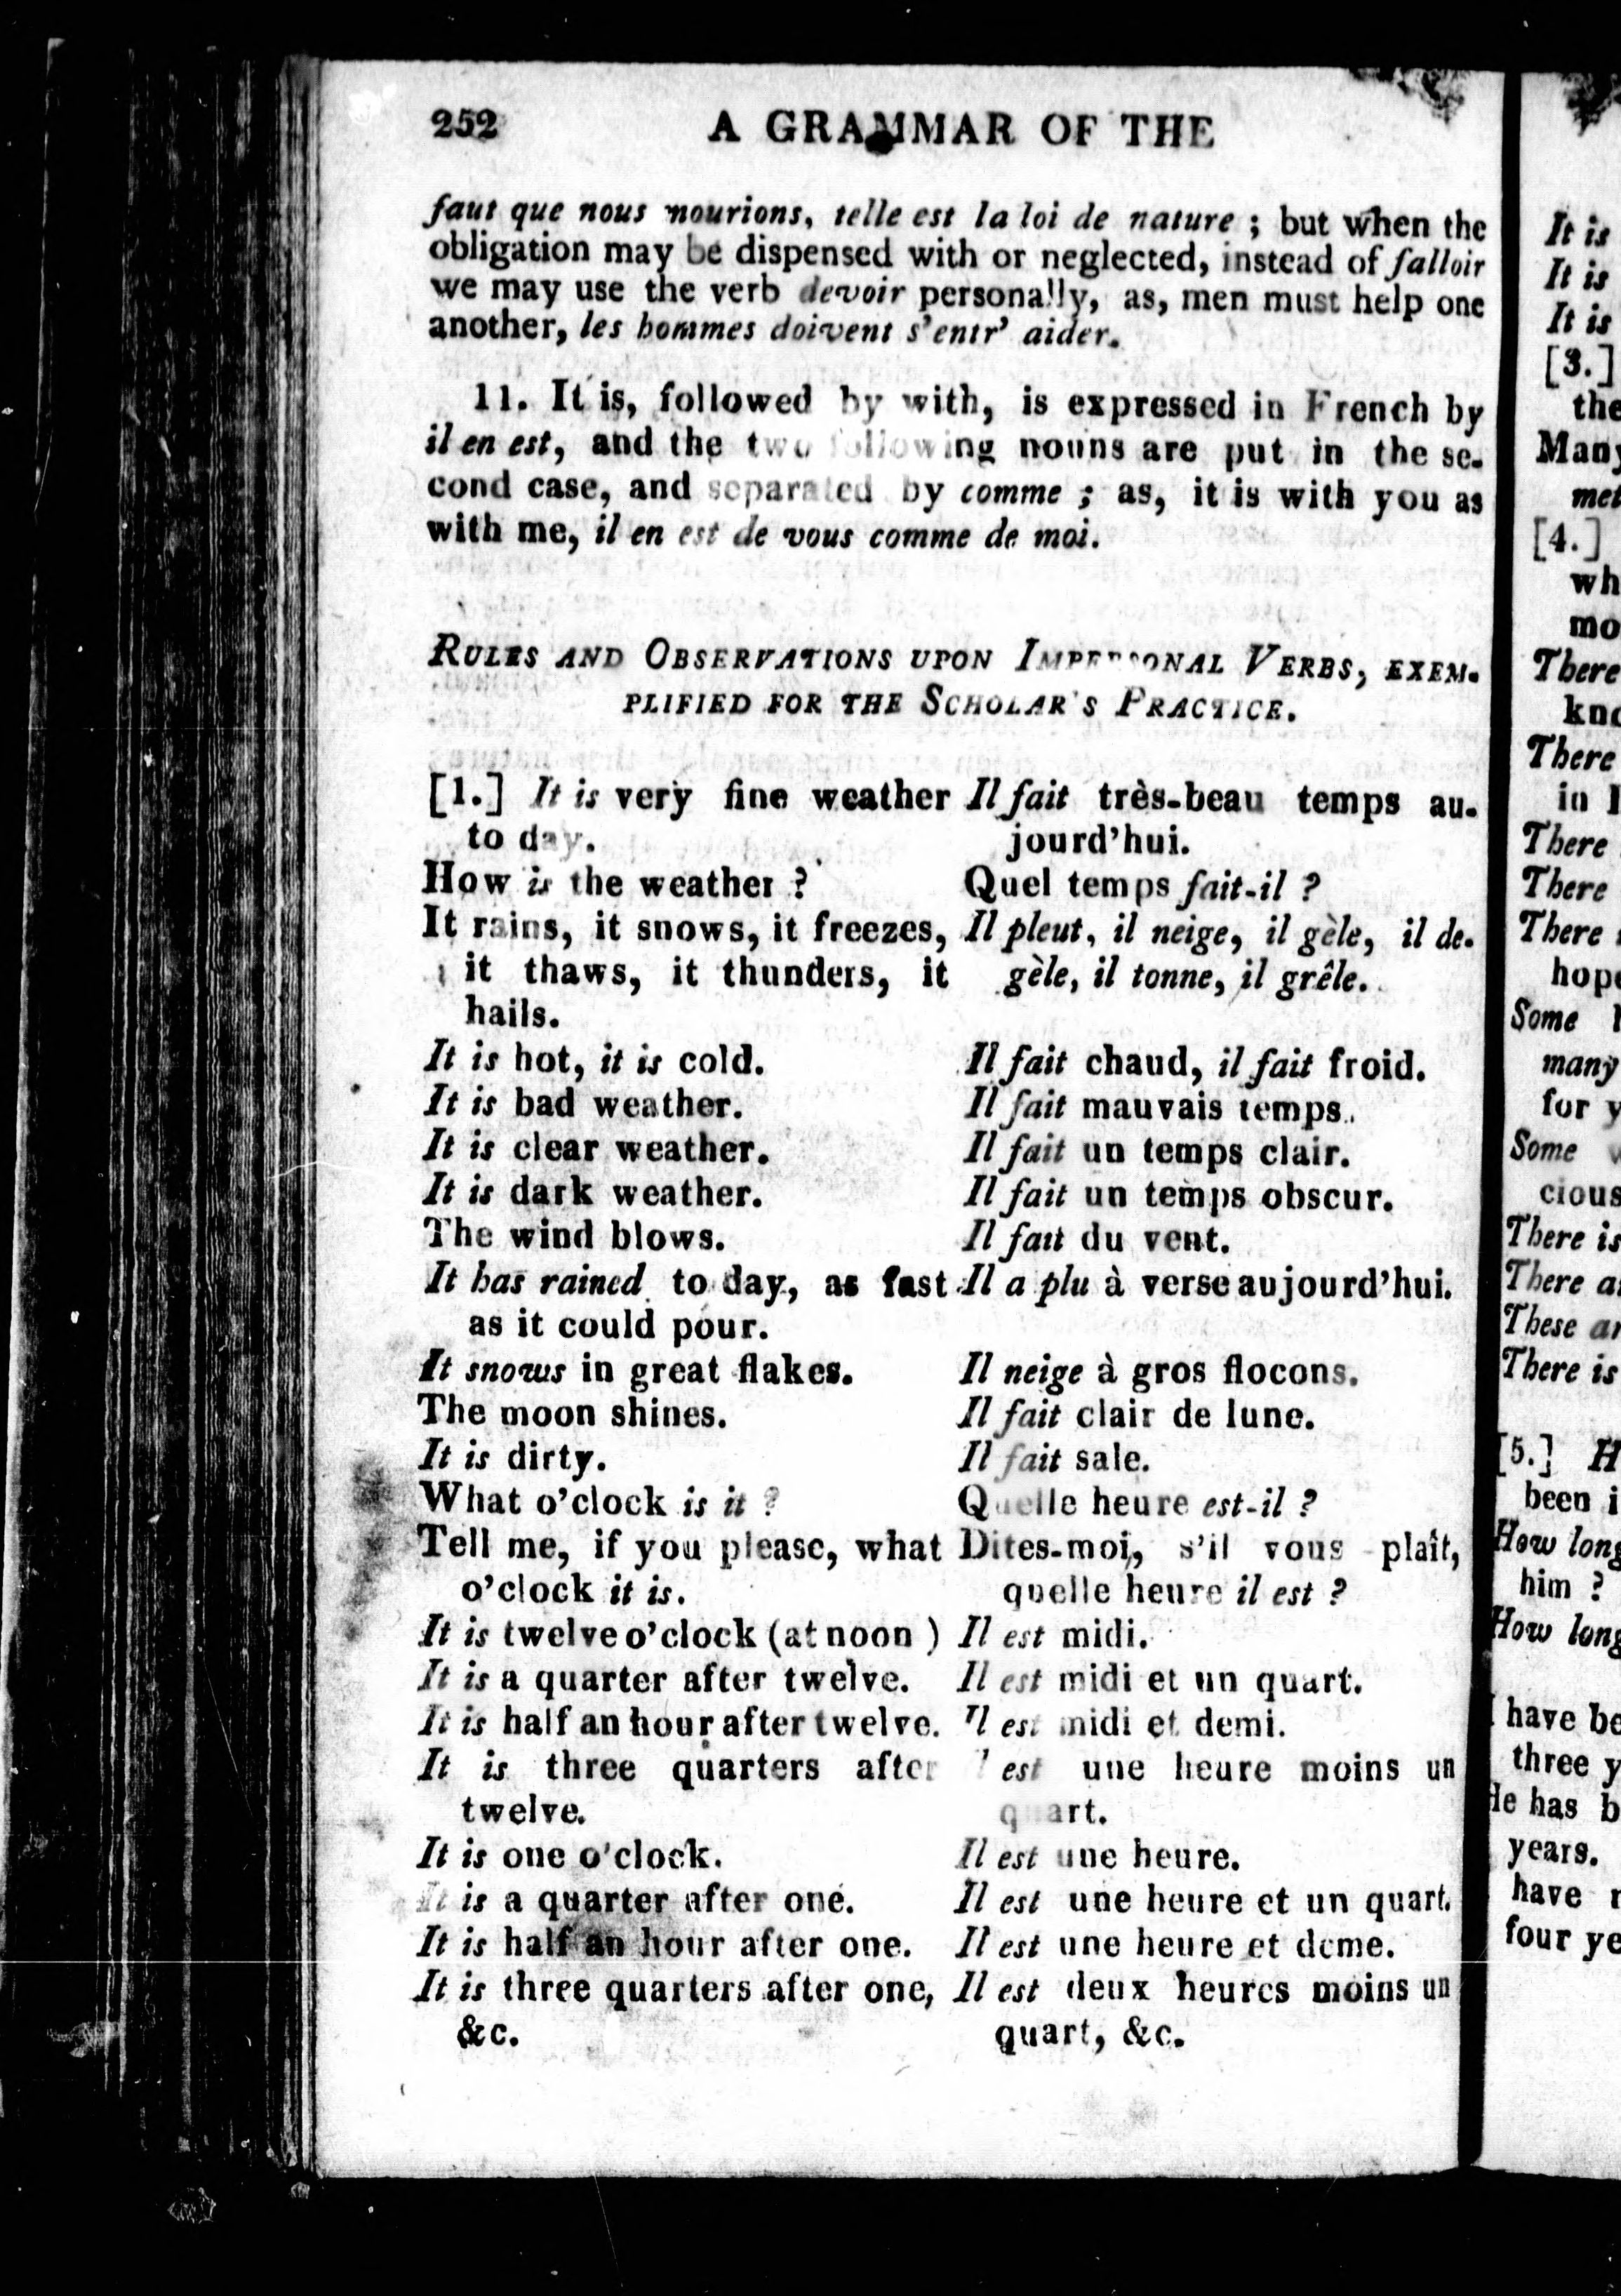 252 A GRAMMAR OF THE
faut que nous nourions, telle est la loi de nature ; but when the
obligation may be dispensed with or neglected, instead of falloir
we may use the verb devoir personally, as, men must help one
another, les hommes doivent s'entr' aider.
11. It is, followed by with, is expressed in French by
il en est, and the two following nouns are put in the se-
cond case, and separated by comme ; as, it is with you as
with me, il en est de vous comme de moi.
RULES AND OBSERVATIONS UPON IMPERSONAL VERBS, EXEM-
PLIFIED FOR THE SCHOLAR'S PRACTICE.
[1.] It is very fine weather Il fait très-beau temps au-
to day. jourd'hui.
How is the weather ? Quel temps fait-il ?
It rains, it snows, it freezes, Il pleut, il neige, il gèle, il de-
it thaws, it thunders, it gèle, il tonne, il grêle.
hails.
It is hot, it is cold. Il fait chaud, il fait froid.
It is bad weather. Il fait mauvais temps.
It is clear weather. Il fait un temps clair.
It is dark weather. Il fait un temps obscur.
The wind blows. Il fait du vent.
It has rained to day, as fast Il a plu à verse aujourd'hui.
as it could pour.
It snows in great flakes. Il neige à gros flocons.
The moon shines. Il fait clair de lune.
It is dirty. Il fait sale.
What o'clock is it ? Quelle heure est-il ?
Tell me, if you please, what Dites-moi, s'il vous plaît,
o'clock it is. quelle heure il est ?
It is twelve o'clock (at noon ) Il est midi.
It is a quarter after twelve. Il est midi et un quart.
It is half an hour after twelve. Il est midi et demi.
It is three quarters after est une heure moins un
twelve. quart.
It is one o'clock. Il est une heure.
It is a quarter after one. Il est une heure et un quart.
It is half an hour after one. Il est une heure et deme.
It is three quarters after one, Il est deux heures moins un
&c. quart, &c.
It is
It is
It is
[3.]
the
[4.]
There
There
in
There
There
There
Some
many
for
Some
cious
There is
There
These
There is
[5.]
been
How long
him ?
How long
have
three
He has
years.
have
four